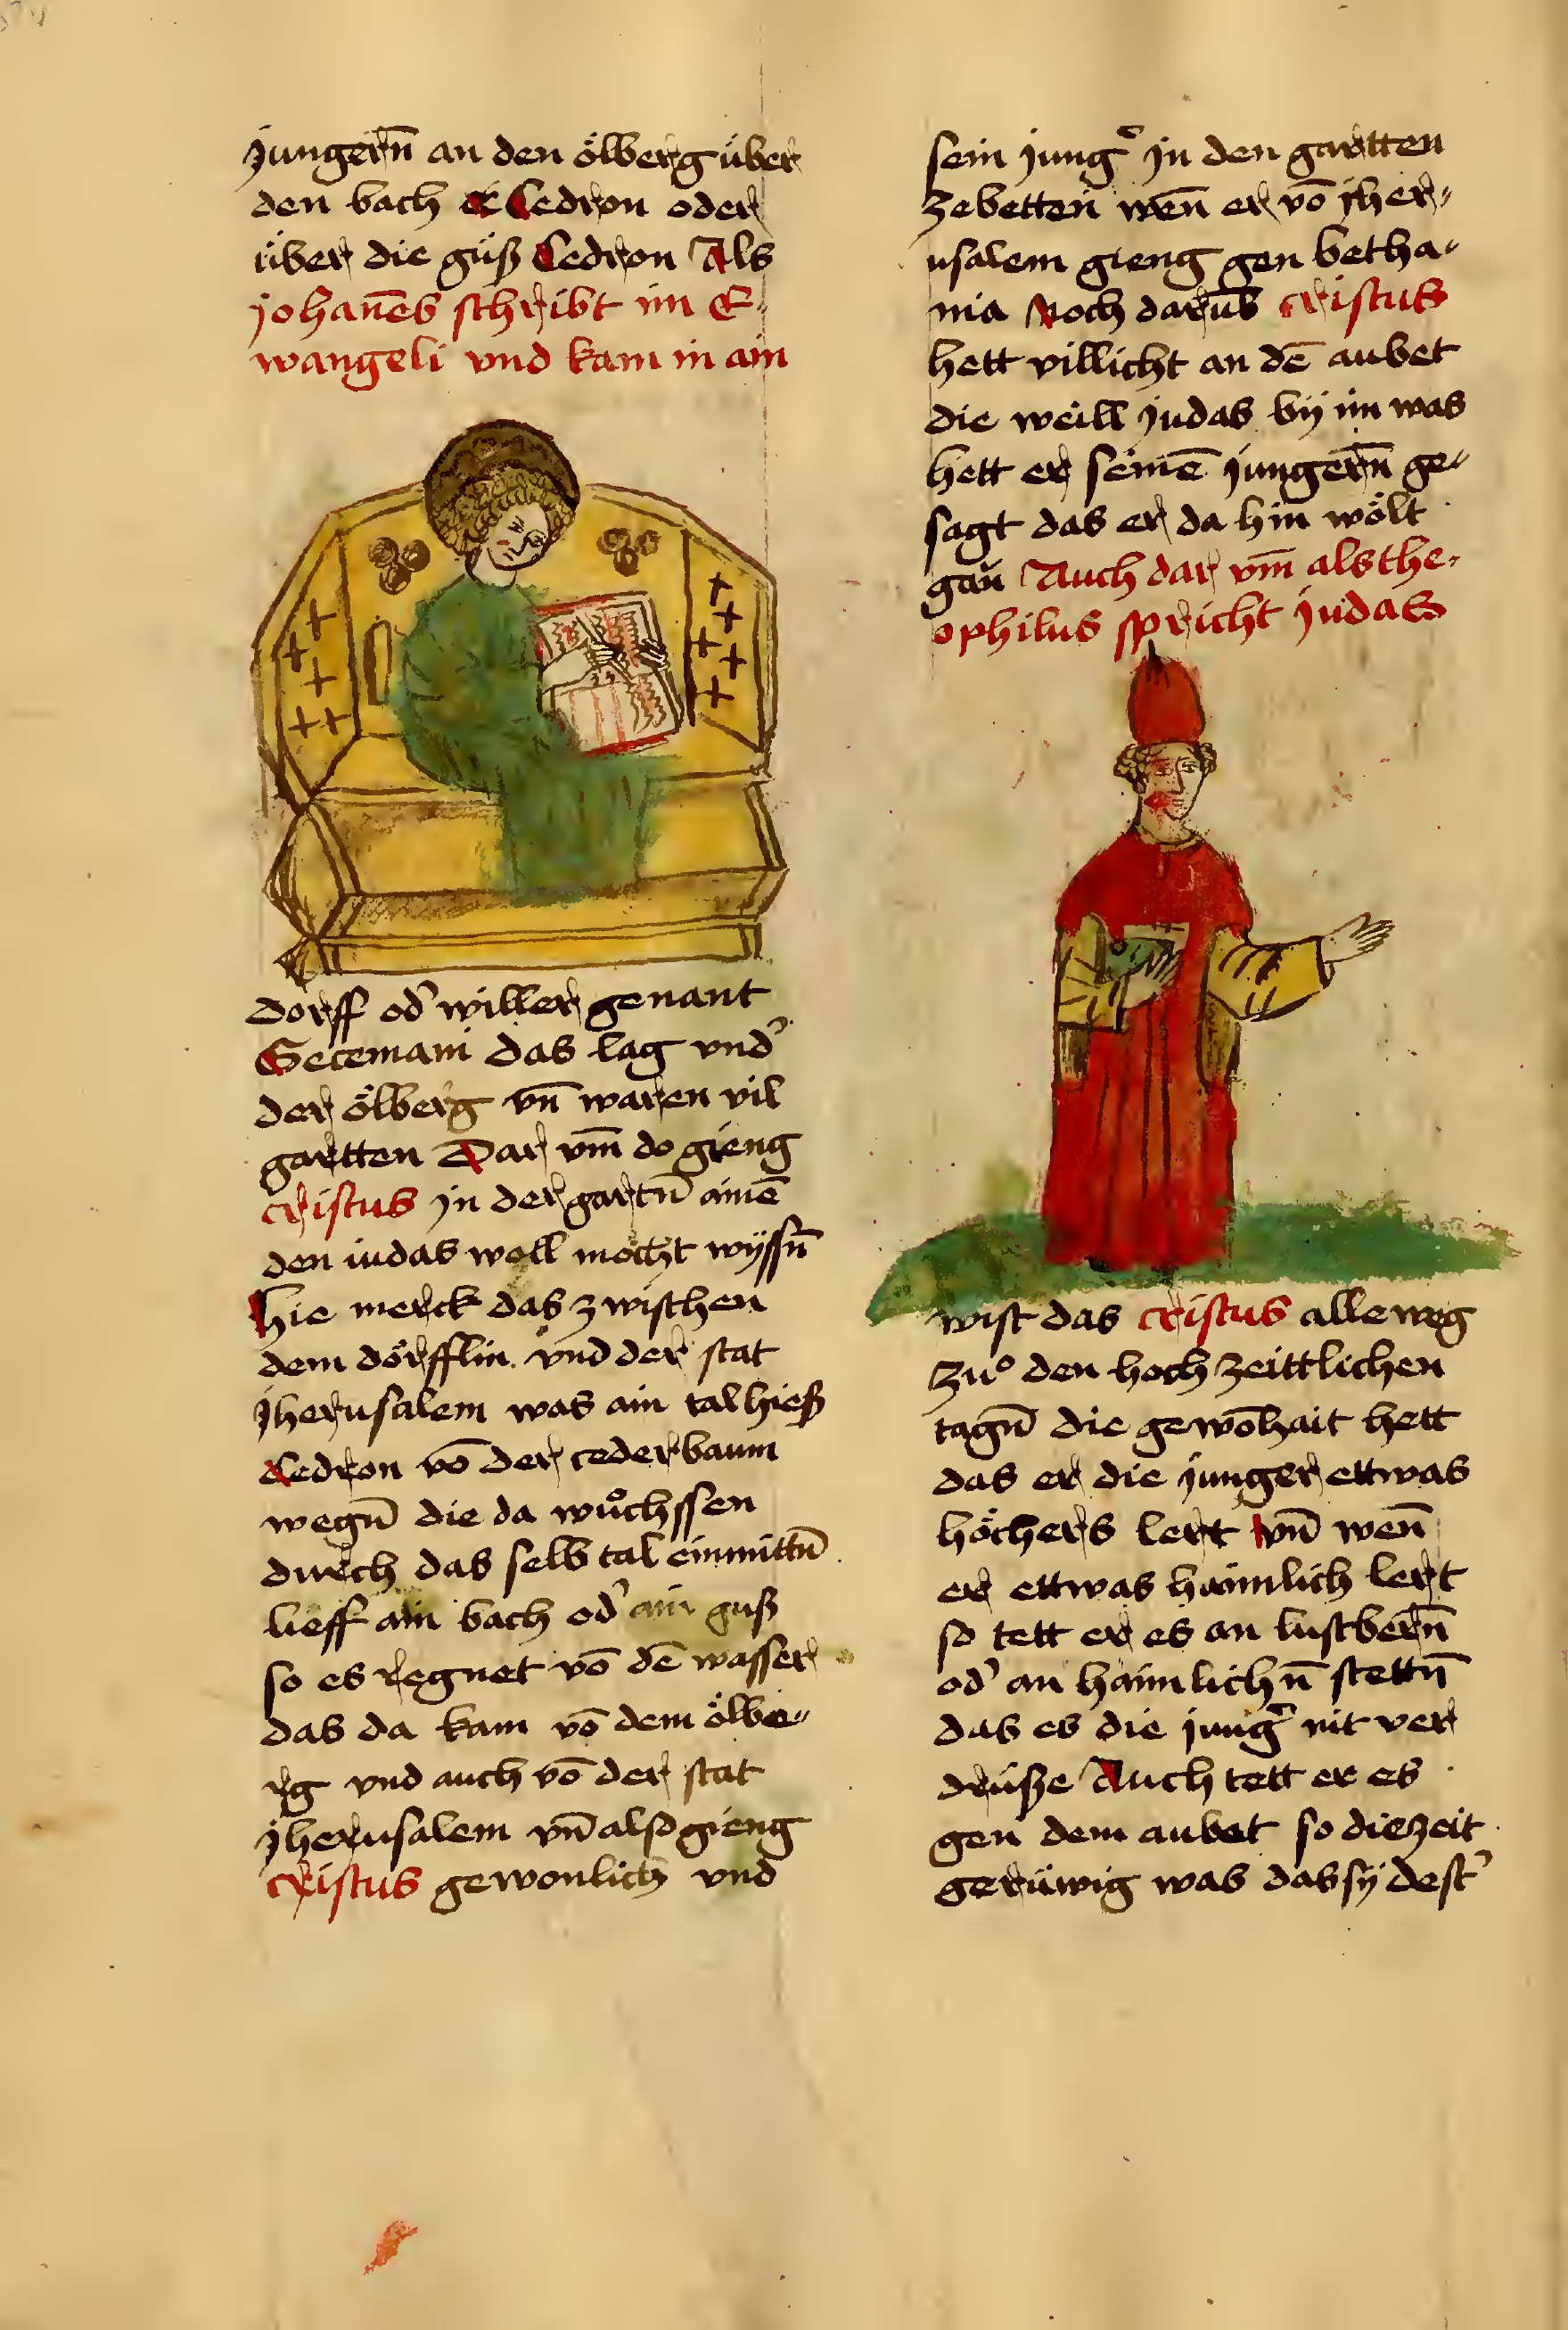 jungern̄ an den ölberg über
den bach Cedron oder
über die güß Cedron Als
johan̄es schribt im E-
wangeli vnd kam in ain
dorff od᾿ willer genant
Gecemani das lag vnd᾿
der ölberg vn̄ waren vil
gartten Dar vm̄ do gieng
cristus jn der gartn̄ ainē
den iudas woll mocht wyssn̄
hie merck das zwischen
dem dörfflin vnd der stat
jherusalem was ain tal hieß
Cedron vō der ceder baum
wegn̄ die da wůchssen
durch das selb tal einmittn̄
lieff ain bach od᾿ ain guß
so es regnet vō dē wasser
das da kam vō dem ölbe-
rg vnd auch vō der stat
jherusalem vn̄ also gieng
cristus gewonlich vnd
sein jung᾿ jn den gartten
zebetten wen̄ er vō jher-
usalem gieng gen betha-
nia Noch darūb cristus
hett villicht an dē aubet
die weill judas bÿ im was
hett er seinē jungern̄ ge-
sagt das er da hin wölt
gan Auch dar vm̄ als the-
ophilus spricht judas
wist das cristus alleweg
zů den hoch zeittlichen
tagn̄ die gewōhait hett
das er die junger ettwas
höchers lert vn̄ wen̄
er ettwas haimlich lert
so tett er es an lustbern̄
od᾿ an haimlichn̄ stettn̄
das es die jung᾿ nit ver
drüße Auch tett er es
gen dem aubet so die zeit
gerüwig was das sÿ dest᾿